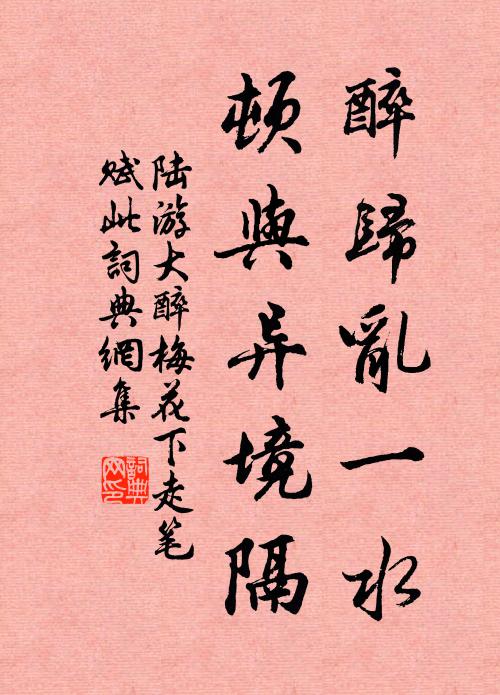 醉歸亂一水
頓與异境隔
陆游大醉梅花下走笔
赋此詞典網集
詞典网印